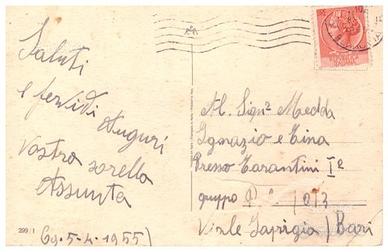 Saluti
e fervidi Auguri
Vostra sorella
Assunta
(9-5-4-1955)
Al Sign⁰ Medda
Ignazio e Tina
Presso Tarantini 1º
gruppo
Viale Iapigia) Bari
299/1